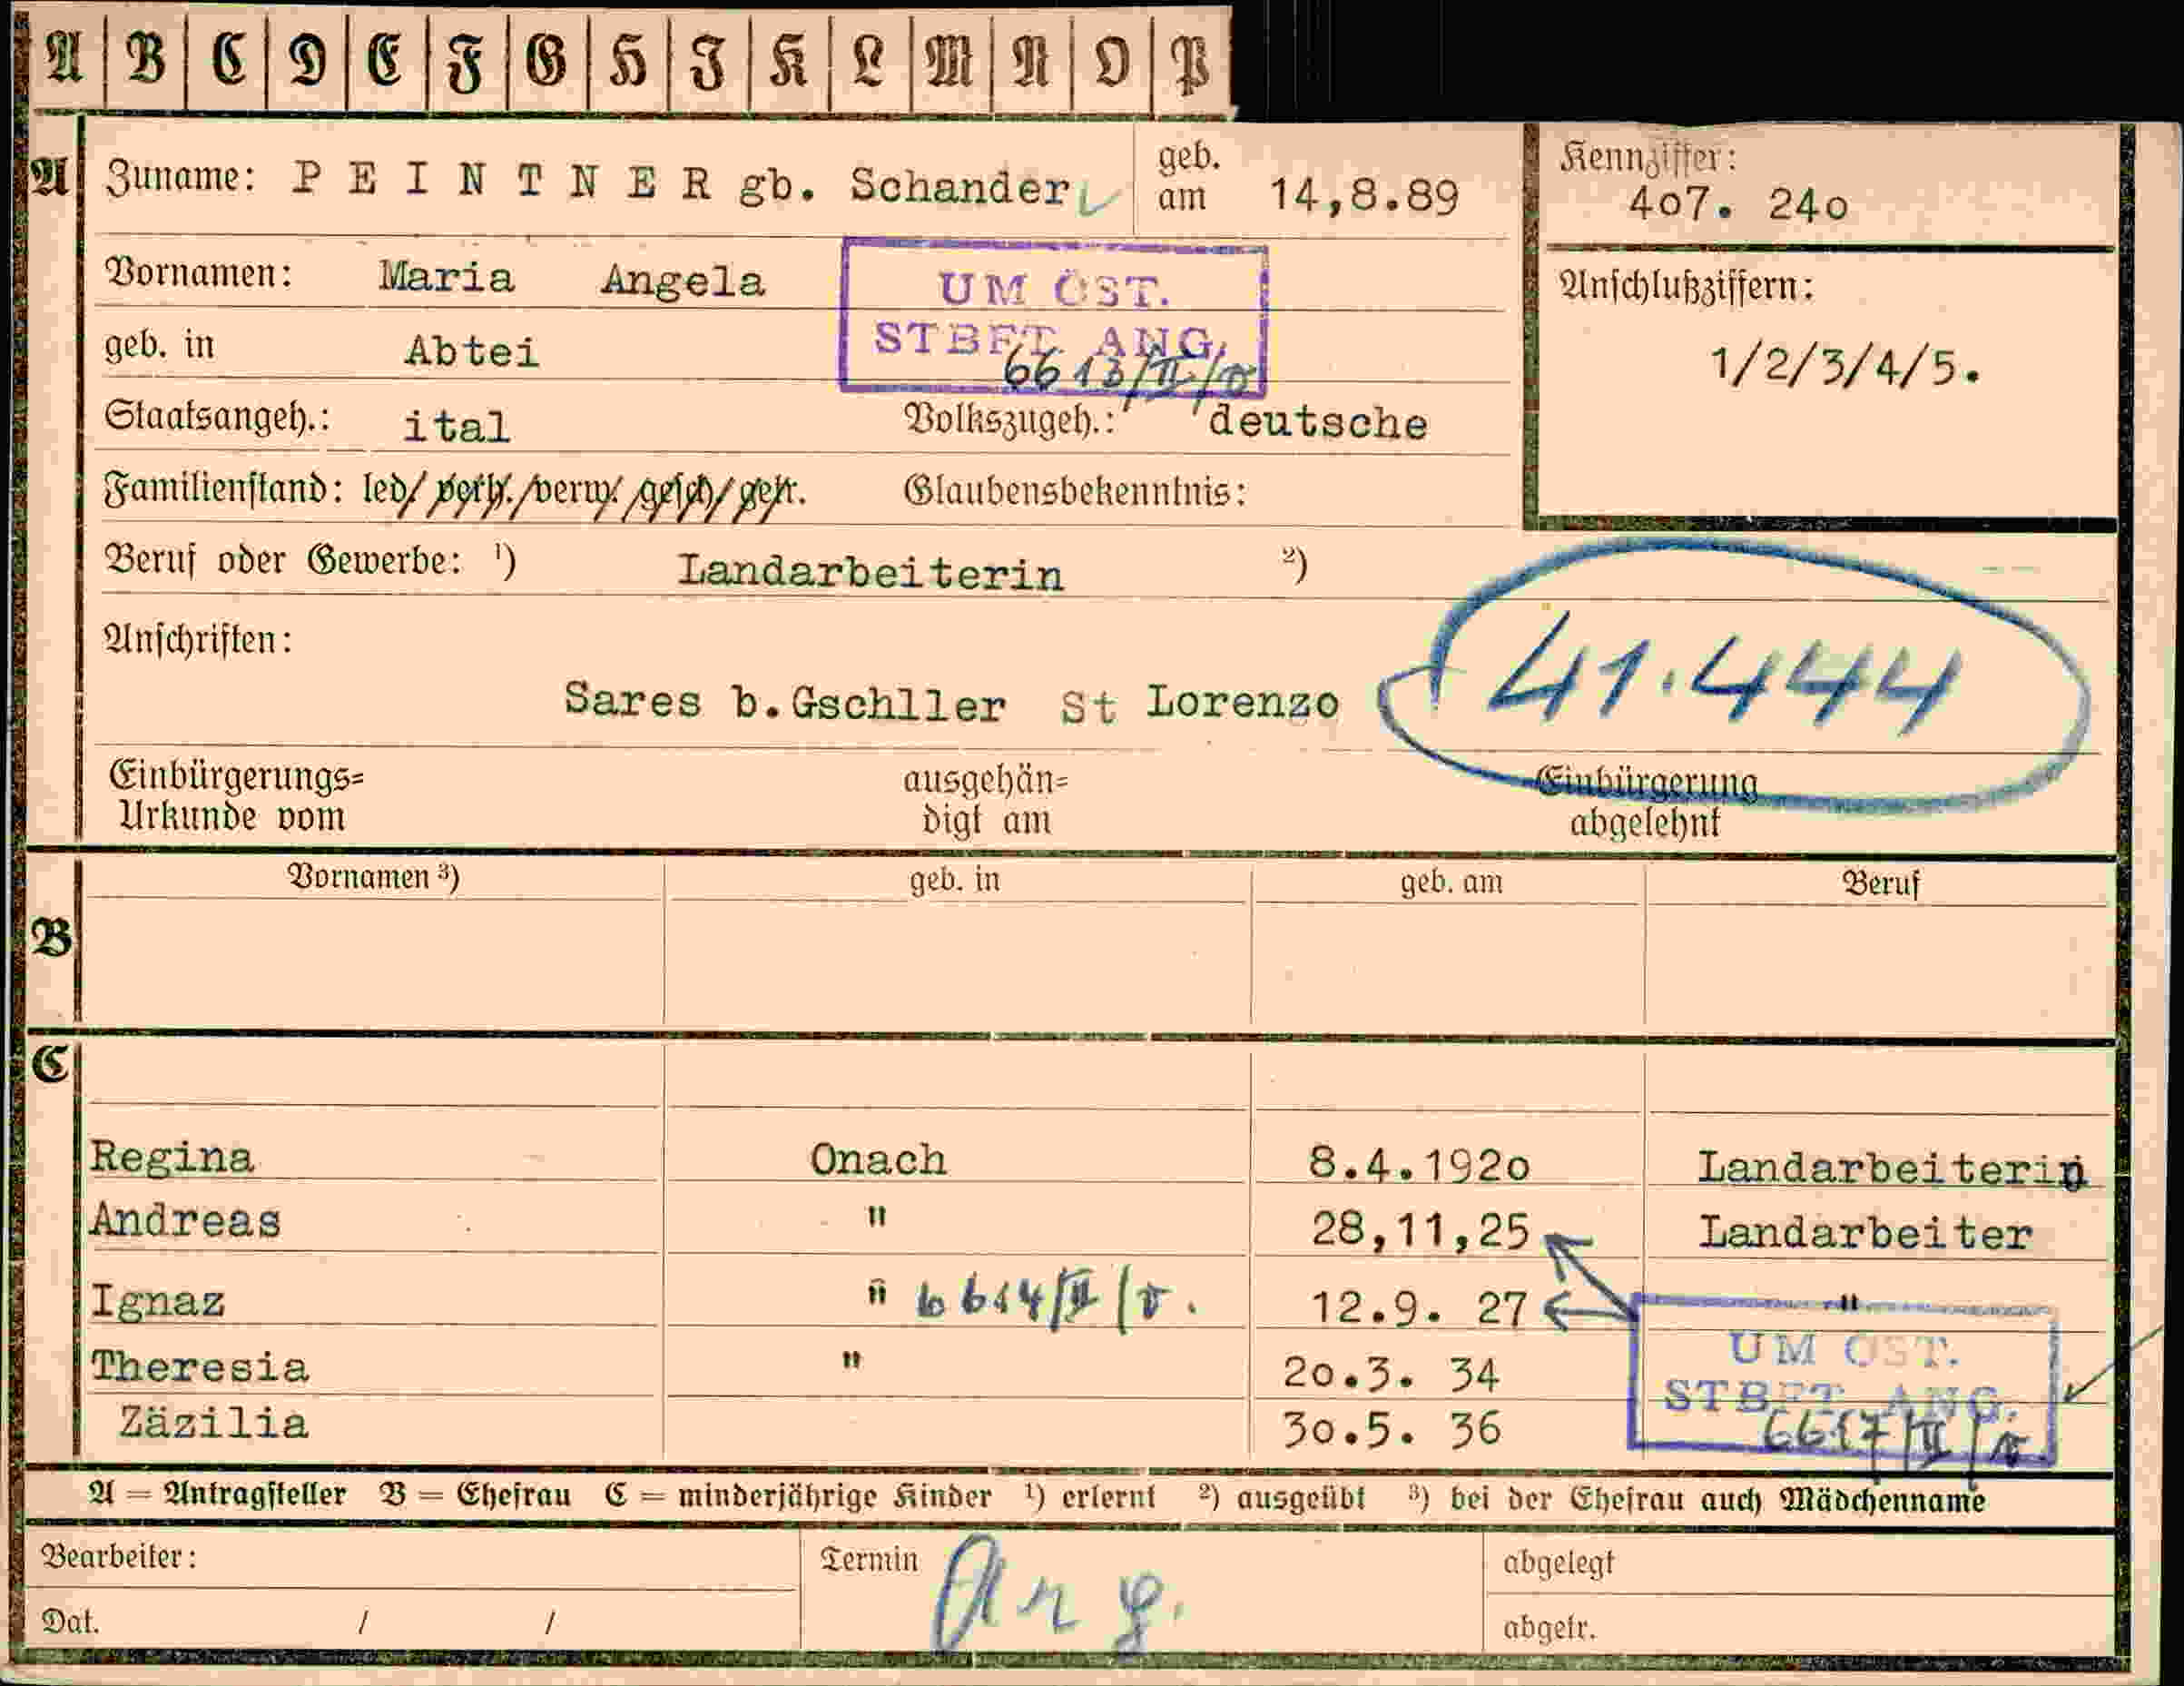 A B C D E F G H I K L M N O P
A Zuname: PEINTNER gb. Schander geb. am 14,8.89
Kennziffer: 407. 240
Vornamen: Maria Angela
UM ÖST.
STBFT. ANG.
6613/II/
geb. in Abtei
Anschlußziffern:
1/2/3/4/5.
Staatsangeh.: ital Volkszugeh.: deutsche
Familienstand: led/ verh./verw/ gesch/ getr. Glaubensbekenntnis:
Beruf oder Gewerbe: ¹) Landarbeiterin ²)
Anschriften:
Sares b.Gschller St Lorenzo
41.444
Einbürgerungs=
Urkunde vom
ausgehän=
digt am
Einbürgerung
abgelehnt
Vornamen ³) geb. in geb. am Beruf
B
C
Regina Onach 8.4.1920 Landarbeiterin
Andreas " 28,11,25 Landarbeiter
Ignaz " 6614/II/ 12.9. 27 "
Theresia " 20.3. 34
Zäzilia 30.5. 36
UM ÖST.
STBFT. ANG.
6617/II/
A = Antragsteller B = Ehefrau C = minderjährige Kinder ¹) erlernt ²) ausgeübt ³) bei der Ehefrau auch Mädchenname
Bearbeiter: Termin abgelegt
Dat. / / abgetr.